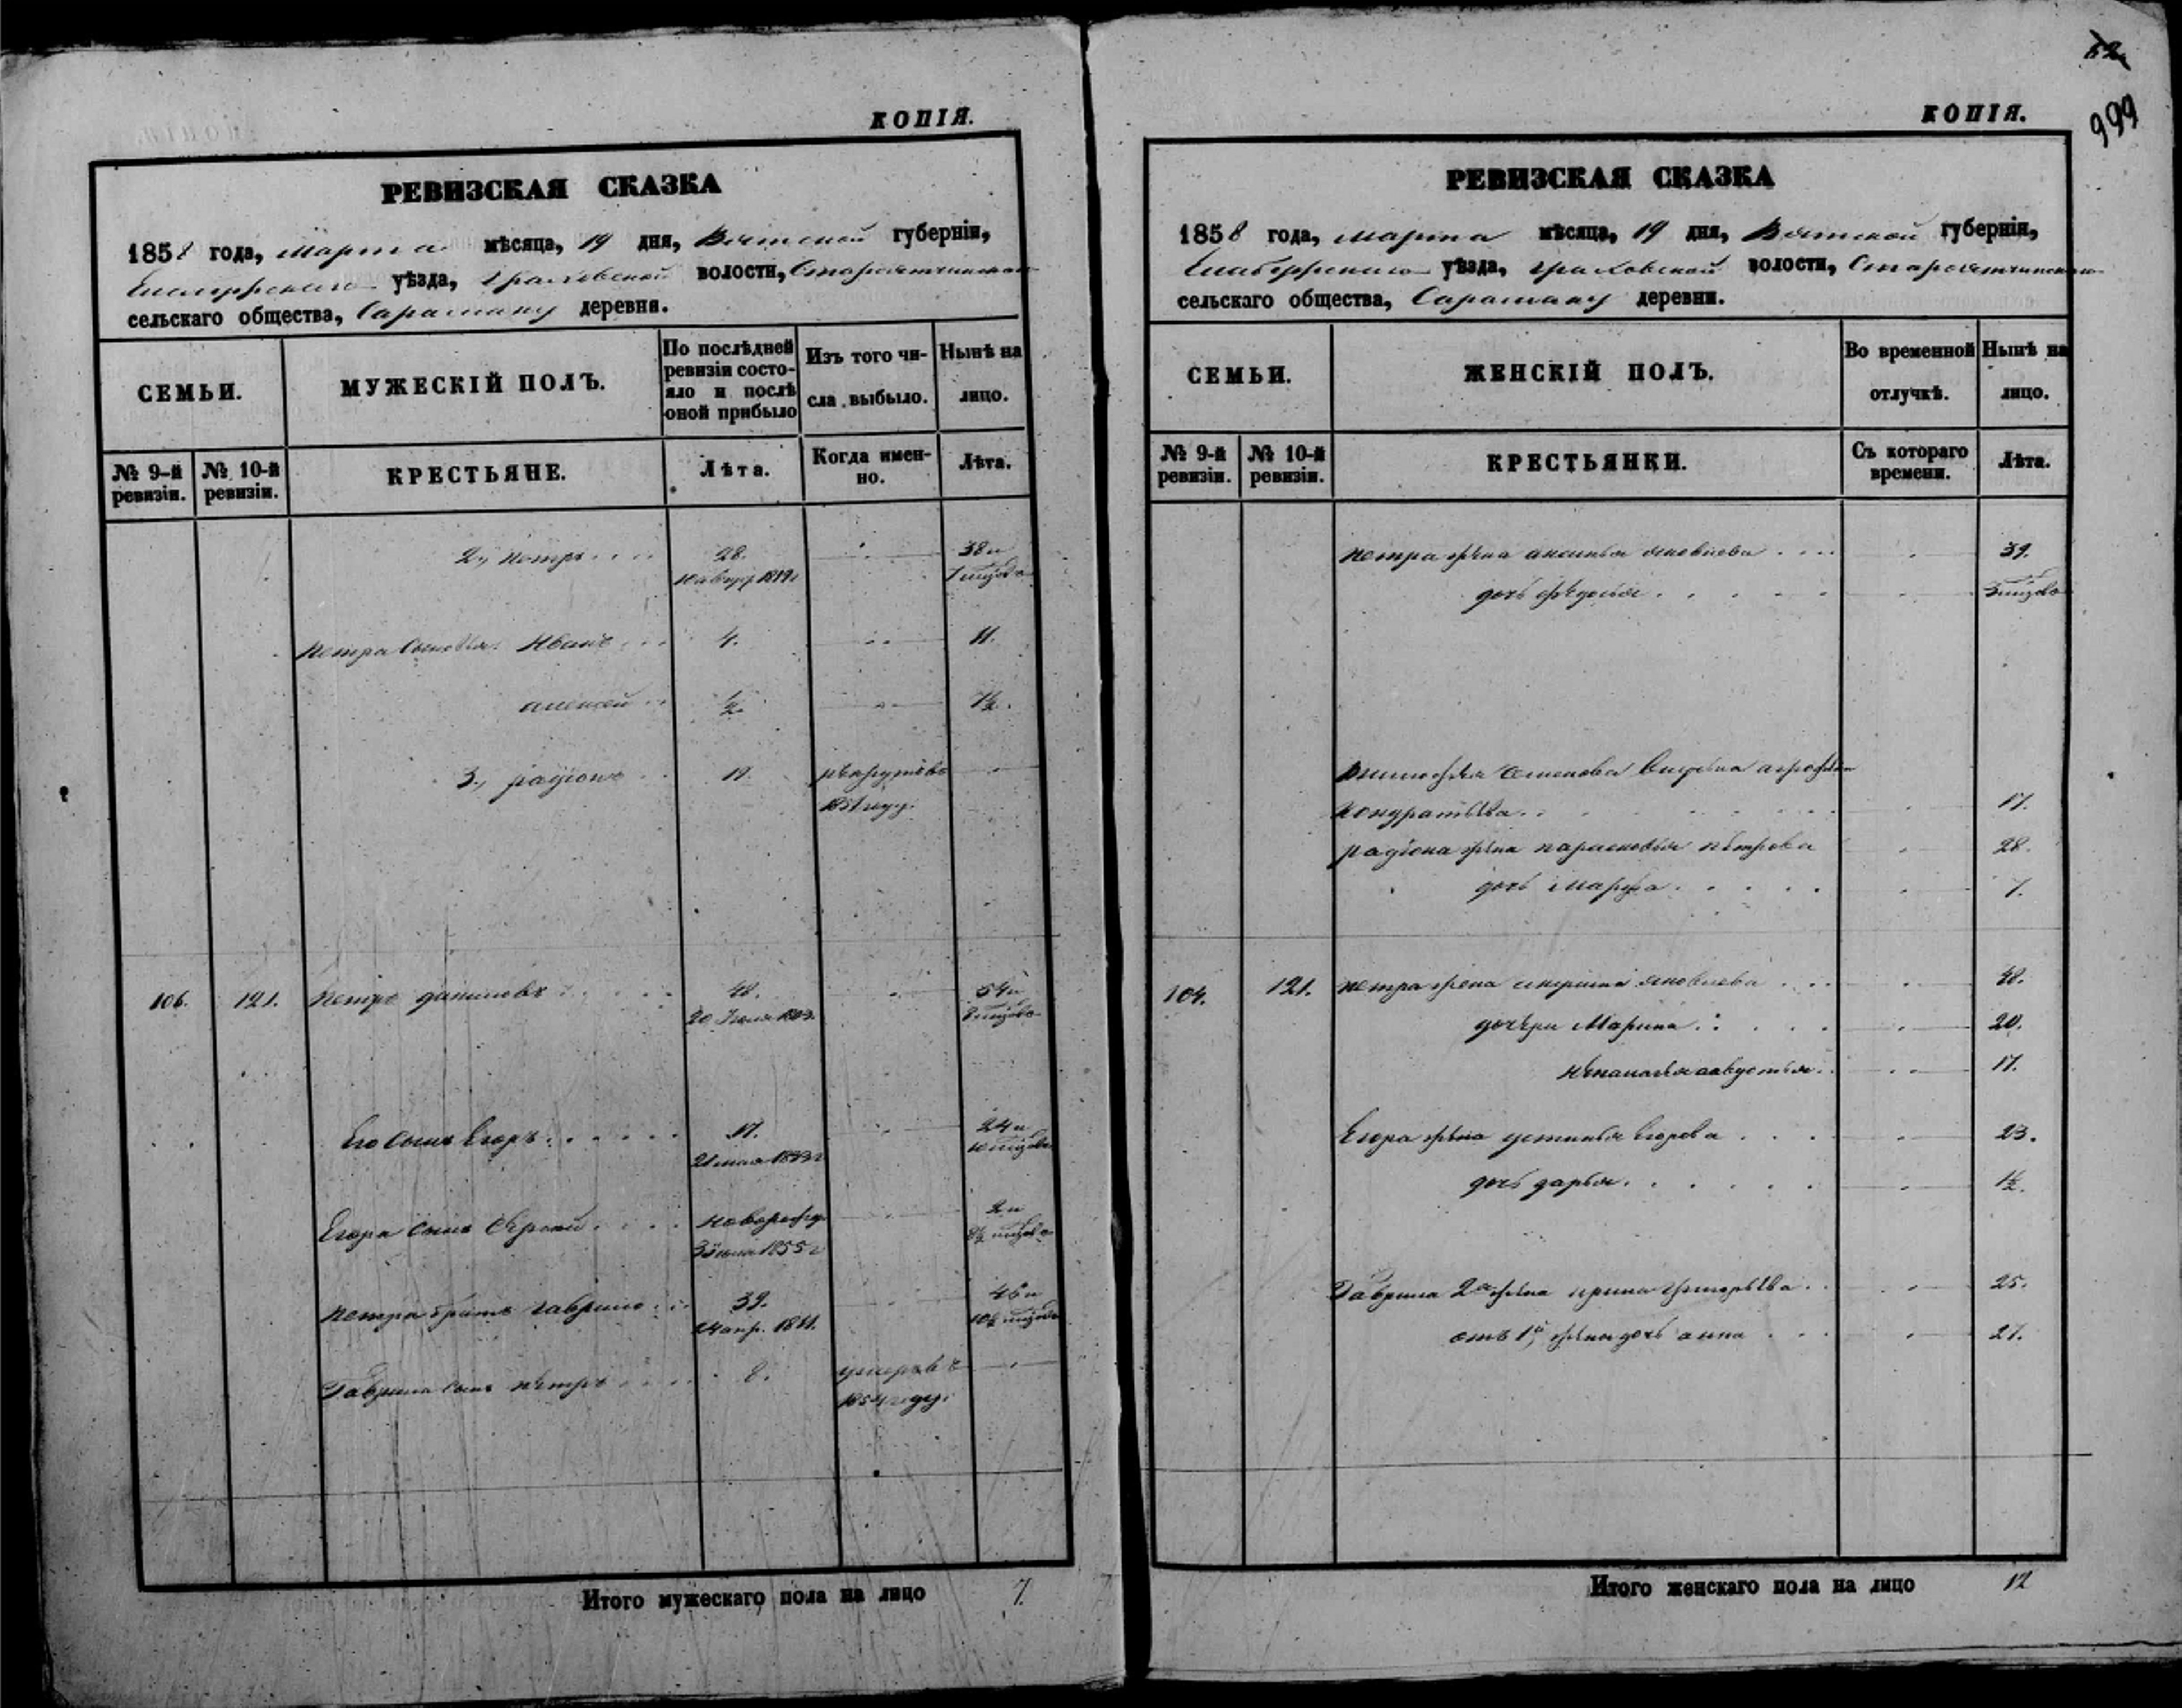 КОПІЯ.
РЕВИЗСКАЯ СКАЗКА
1858 года, марта мѣсяца, 19 дня, Вятской губерніи,
Елабужскаго уѣзда, Граховской волости,
сельскаго общества, Сарамаку деревня.
СЕМЬИ.
МУЖЕСКІЙ ПОЛЪ.
По послѣдней ревизіи состояло и послѣ оной прибыло
Изъ того числа выбыло.
Нынѣ на лицо.
№ 9-й ревизіи.
№ 10-й ревизіи.
КРЕСТЬЯНЕ.
Лѣта.
Когда именно.
Лѣта.
2, петръ 28. 38 и
1819
Петра сыновья: Иванъ 4. 11.
алексей ½ 7½.
3, радіонъ 19. рекрутовъ
1851 году.
106. 121. Петръ даниловъ 48. 54 и
20 Іюля 8 месяцовъ
Его сынъ Егоръ 17. 24 и
21 мая 1833 г 10 месяцовъ
Егора сынъ Сергей новорожд. 2 и
3 Іюля 1855 г 8½ месяцовъ
петра братъ гаврило 39. 46 и
14 апр. 1811. 10½ месяцовъ
Гаврила сынъ петръ 8. умеръ въ
1854 году.
Итого мужескаго пола на лицо 7.
52
999
КОПІЯ.
РЕВИЗСКАЯ СКАЗКА
1858 года, марта мѣсяца, 19 дня, Вятской губерніи,
Елабужскаго уѣзда, Граховской волости,
сельскаго общества, Сарамаку деревни.
СЕМЬИ.
ЖЕНСКІЙ ПОЛЪ.
Во временной отлучкѣ.
Нынѣ на лицо.
№ 9-й ревизіи.
№ 10-й ревизіи.
КРЕСТЬЯНКИ.
Съ котораго времени.
Лѣта.
петра жена аксинья яковлева 39.
дочь федосья
семенова
Кондратьева 17.
радіона жена парасковья петрова 28.
дочь Марфа 7.
104. 121. петра жена яковлева 48.
дочери Марина 20.
17.
Егора жена устинья Егорова 23.
дочь дарья 1½.
Гаврила 2я жена ирина григорьева 25.
отъ 1й жены дочь анна 21.
Итого женскаго пола на лицо 12